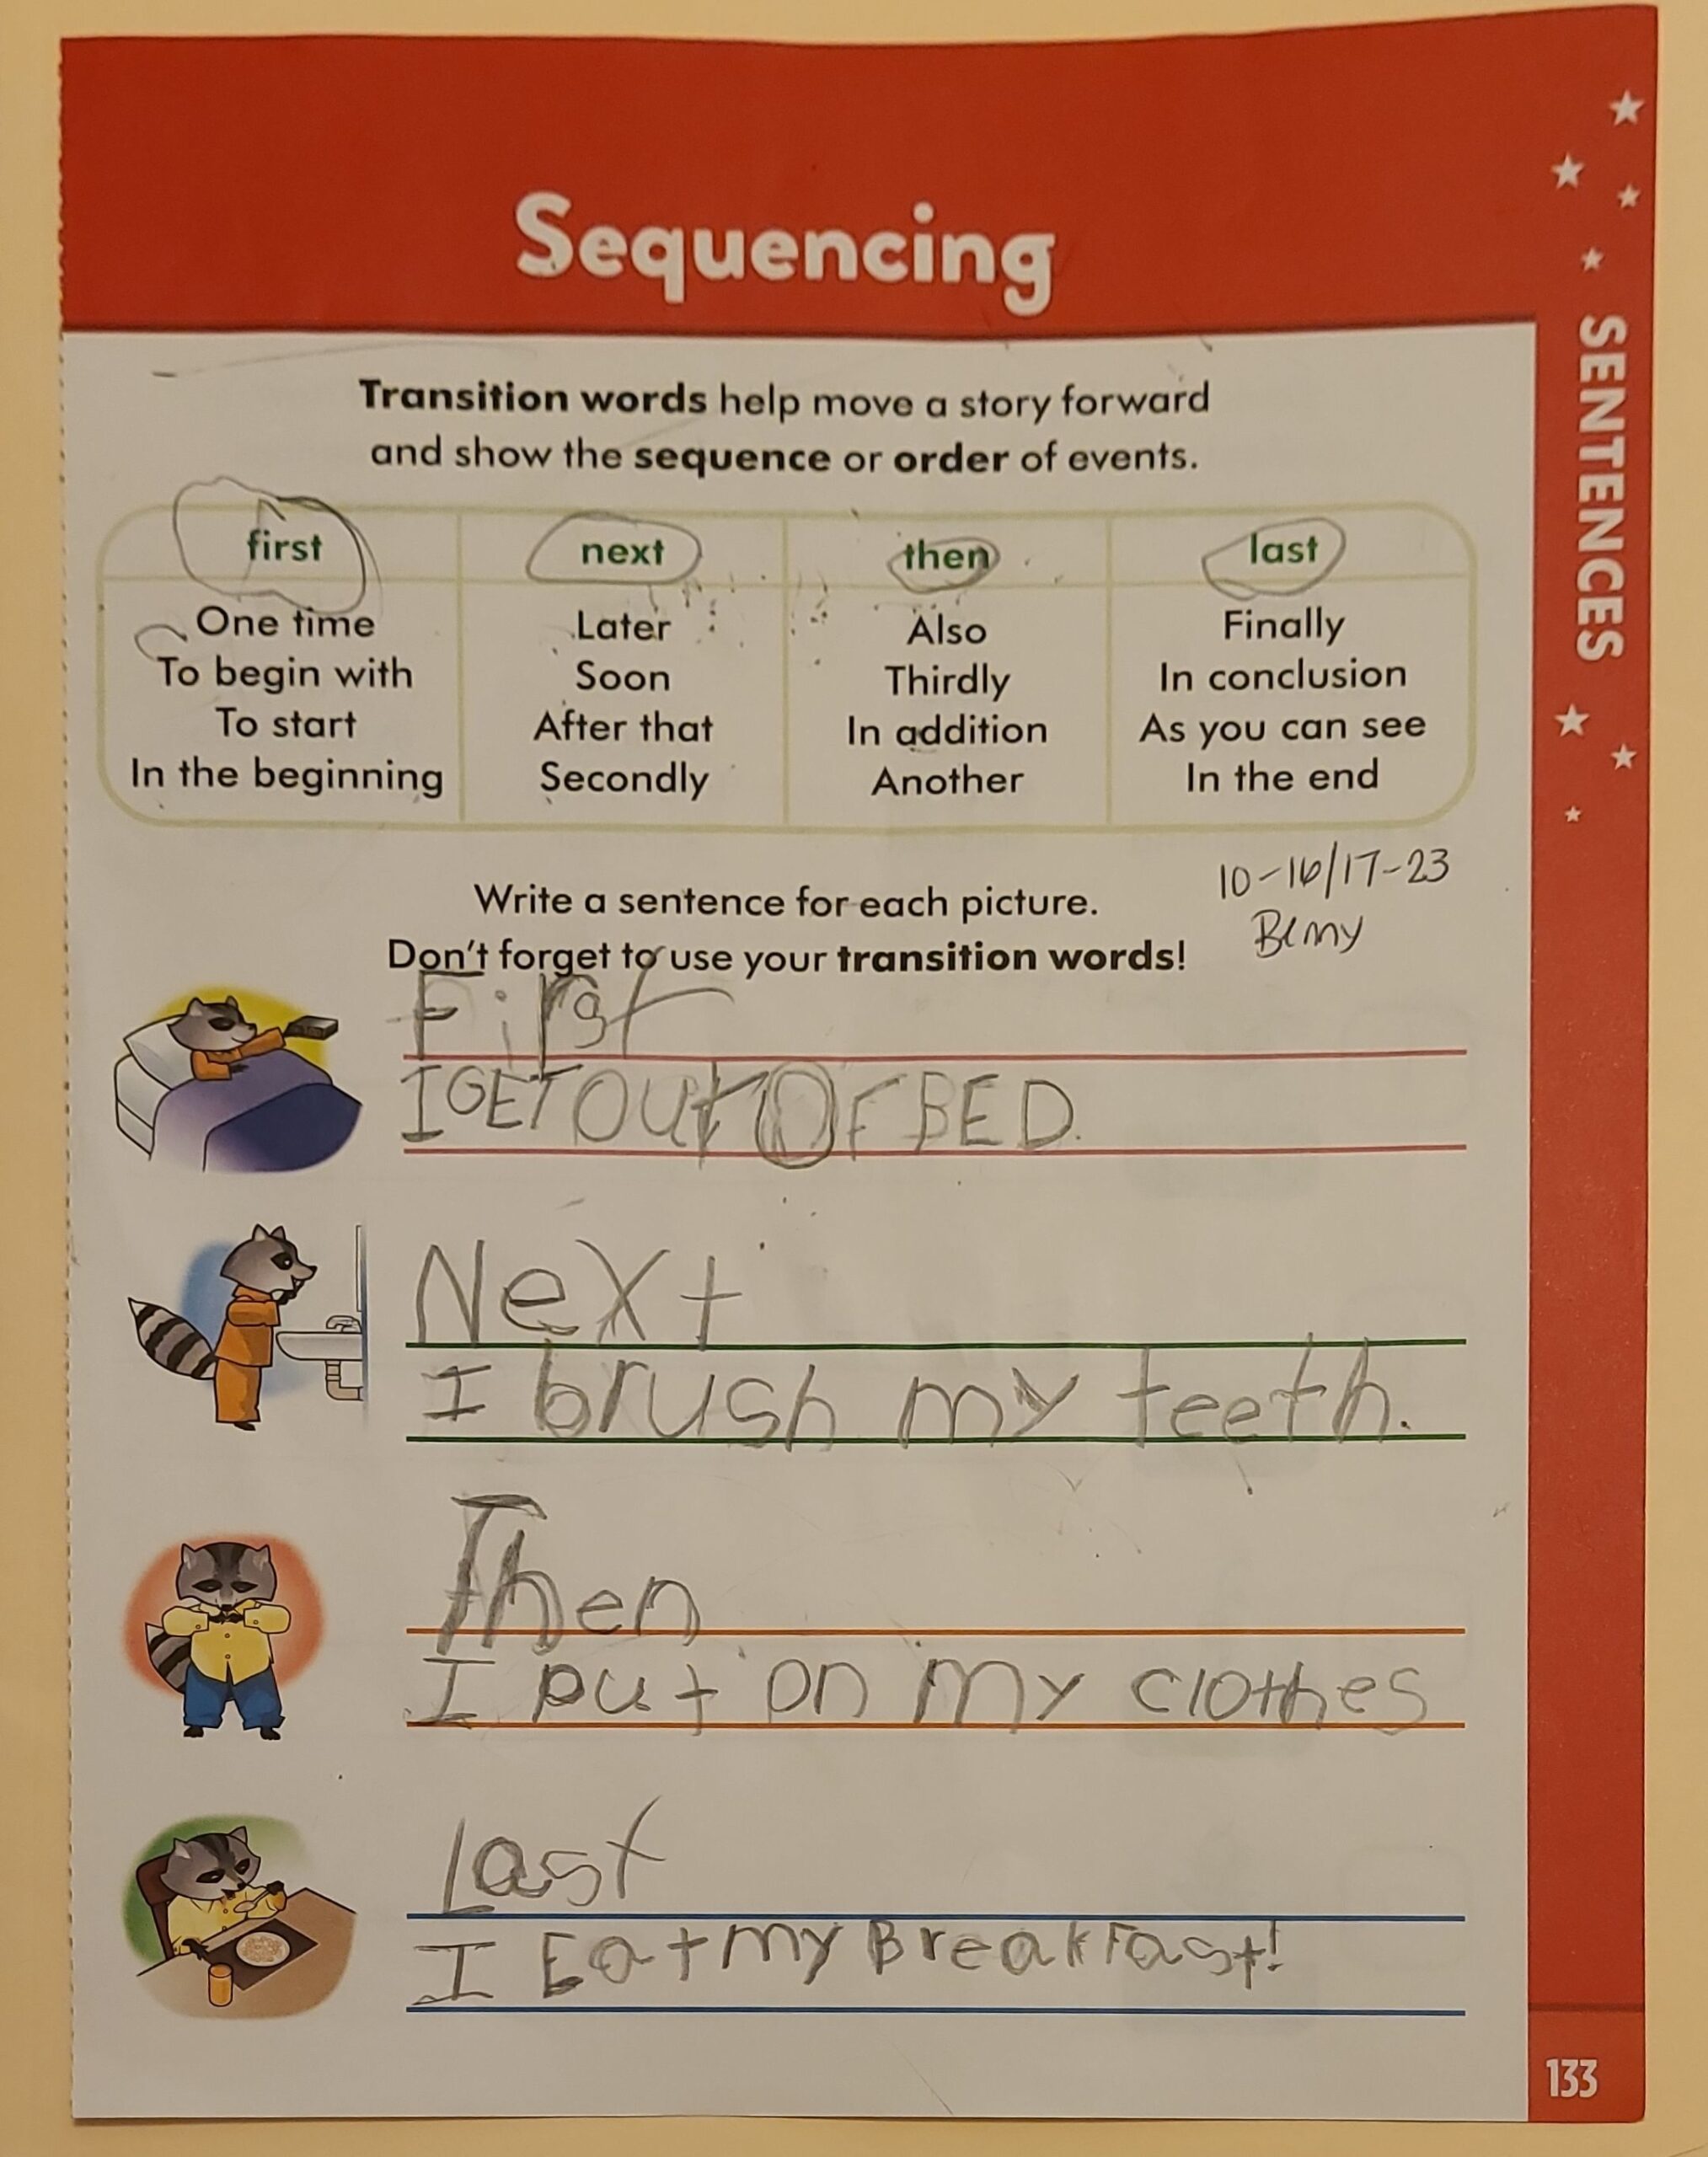 Sequencing
SENTENCES
Transition words help move a story forward
and show the sequence or order of events.
first next then last
One time Later Also Finally
To begin with Soon Thirdly In conclusion
To start After that In addition As you can see
In the beginning Secondly Another In the end
10-16/17-23
Write a sentence for each picture.
Don't forget to use your transition words!
First
I GET OUt OF BED.
Next
I brush my teeth.
Then
I put on my clothes
Last
I Eat my BreakFast!
133